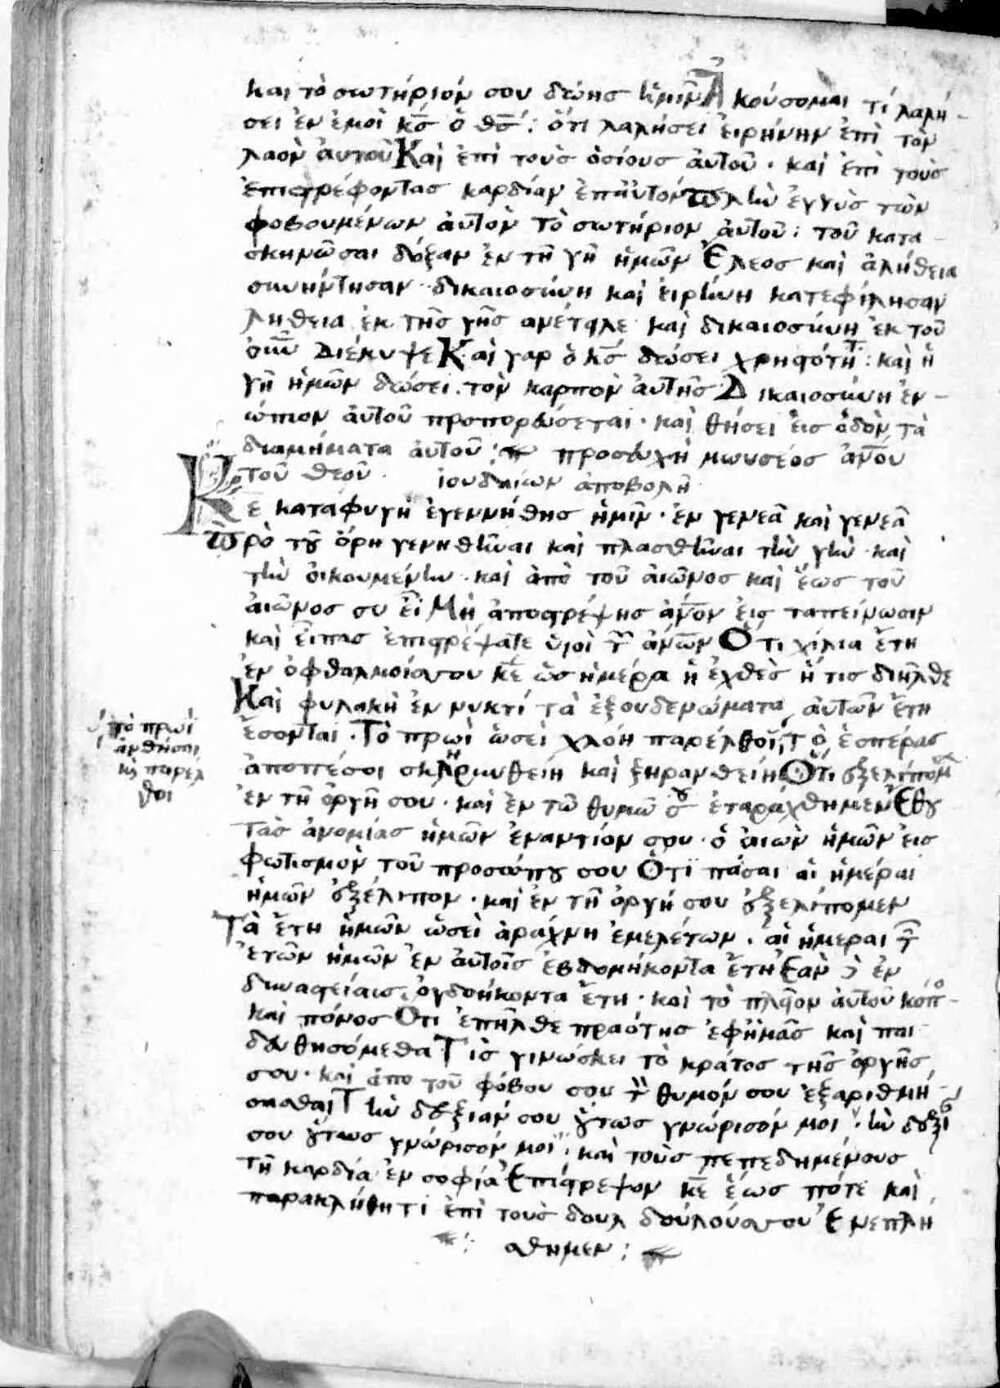 και τὸ σωτήριόν σου δώης ἡμῖν Ἀκούσομαι τί λαλή-
σει ἐν ἐμοὶ κς ὁ θς: ὅτι λαλήσει εἰρήνην ἐπὶ τὸν
λαὸν αὐτοῦ Καὶ ἐπὶ τοὺς ὁσίους αὐτοῦ · καὶ ἐπὶ τοὺς
ἐπιστρέφοντας καρδίαν ἐπ αὐτόν Πλὴν ἐγγὺς τῶν
φοβουμένων αὐτὸν τὸ σωτήριον αὐτοῦ: τοῦ κατα-
σκηνῶσαι δόξαν ἐν τῇ γῇ ἡμῶν Ἔλεος καὶ ἀλήθεια
συνήντησαν · δικαιοσύνη καὶ εἰρήνη κατεφίλησαν
λήθεια ἐκ τῆς γῆς ἀνέτειλε καὶ δικαιοσύνη ἐκ τοῦ
διέκυψε Καὶ γαρ ὁ κς δώσει χρηστότητ: καὶ ἡ
γῆ ἡμῶν δώσει · τὸν καρπὸν αὐτῆς Δικαιοσύνη ἐν-
ώπιον αὐτοῦ προπορεύσεται · καὶ θήσει εἰς ὁδὸν τὰ
διαμήματα αὐτοῦ: προσευχὴ μωυσέος ἀνου
τοῦ θεοῦ · ἰουδαίων ἀποβολὴ
Κε καταφυγὴ ἐγεννήθης ἡμῖν · ἐν γενεᾶ καὶ γενεᾶ
Πρὸ τοῦ ὄρη γενηθῆναι καὶ πλασθῆναι τὴν γῆν · καὶ
τὴν οἰκουμένην · καὶ ἀπὸ τοῦ αἰῶνος καὶ ἕως τοῦ
αἰῶνος συ εἶ Μὴ ἀποστρέψης ἀνον εἰς ταπείνωσιν
καὶ εἶπας ἐπιστρέψατε ὑιοὶ τ ἀνων Ὅτι χίλια ἔτη
ἐν ὀφθαλμοίς σου κε ὡς ἡμέρα ἡ ἐχθὲς ἥτις διῆλθε
Καὶ φυλακὴ ἐν νυκτί τὰ ἐξουδενώματα αὐτῶν ἔτη
ἔσονται · Τὸ πρωὶ ὡσεὶ χλόη παρέλθοι, Τὸ ἑσπέρας
ὑ τὸ πρωὶ
ἀνθήσαι
κ παρέλ
θοι
ἀποπέσοι σκληρυνθείη καὶ ξηρανθείη Ὅτι ἐξελίπομ
ἐν τῇ ὀργῇ σου · καὶ ἐν τῶ θυμῶ σου ἐταράχθημεν Ἔθου
τὰς ἀνομίας ἡμῶν ἐναντίον σου · ὁ αἰὼν ἡμῶν εἰς
φωτισμὸν τοῦ προσώπου σου Ὅτι πάσαι αἱ ἡμέραι
ἡμῶν ἐξέλιπον · καὶ ἐν τῇ ὀργή σου ἐξελίπομεν
Τὰ ἔτη ἡμῶν ὡσεὶ ἀράχνη ἐμελέτων · αἱ ἡμεραι τ
ἐτῶν ἡμῶν ἐν αὐτοῖς ἑβδομήκοντα ἔτη Ἐὰν ἐν
δυναστείαις ὀγδοήκοντα ἔτη · καὶ τὸ πλεῖον αὐτοῦ κόπο-
καὶ πόνος Ὅτι ἐπῆλθε πραότης ἐφ ἡμᾶς καὶ παι
δευθησόμεθα Τίς γινώσκει τὸ κράτος τῆς ὀργῆς
σου · καὶ ἀπο τοῦ φόβου σου θυμόν σου ἐξαριθμή
σασθαι Τὴν δεξιάν σου οὕτως γνώρισόν μοι · ὴν δεξι
σου οὕτως γνώρισόν μοι · καὶ τοὺς πεπεδημένους
τῇ καρδία ἐν σοφία Ἐπίστρεψον κε ἕως πότε καὶ
παρακλήθητι ἐπὶ τοὺς δουλ δούλους σου Ἐνεπλή
σθημεν: